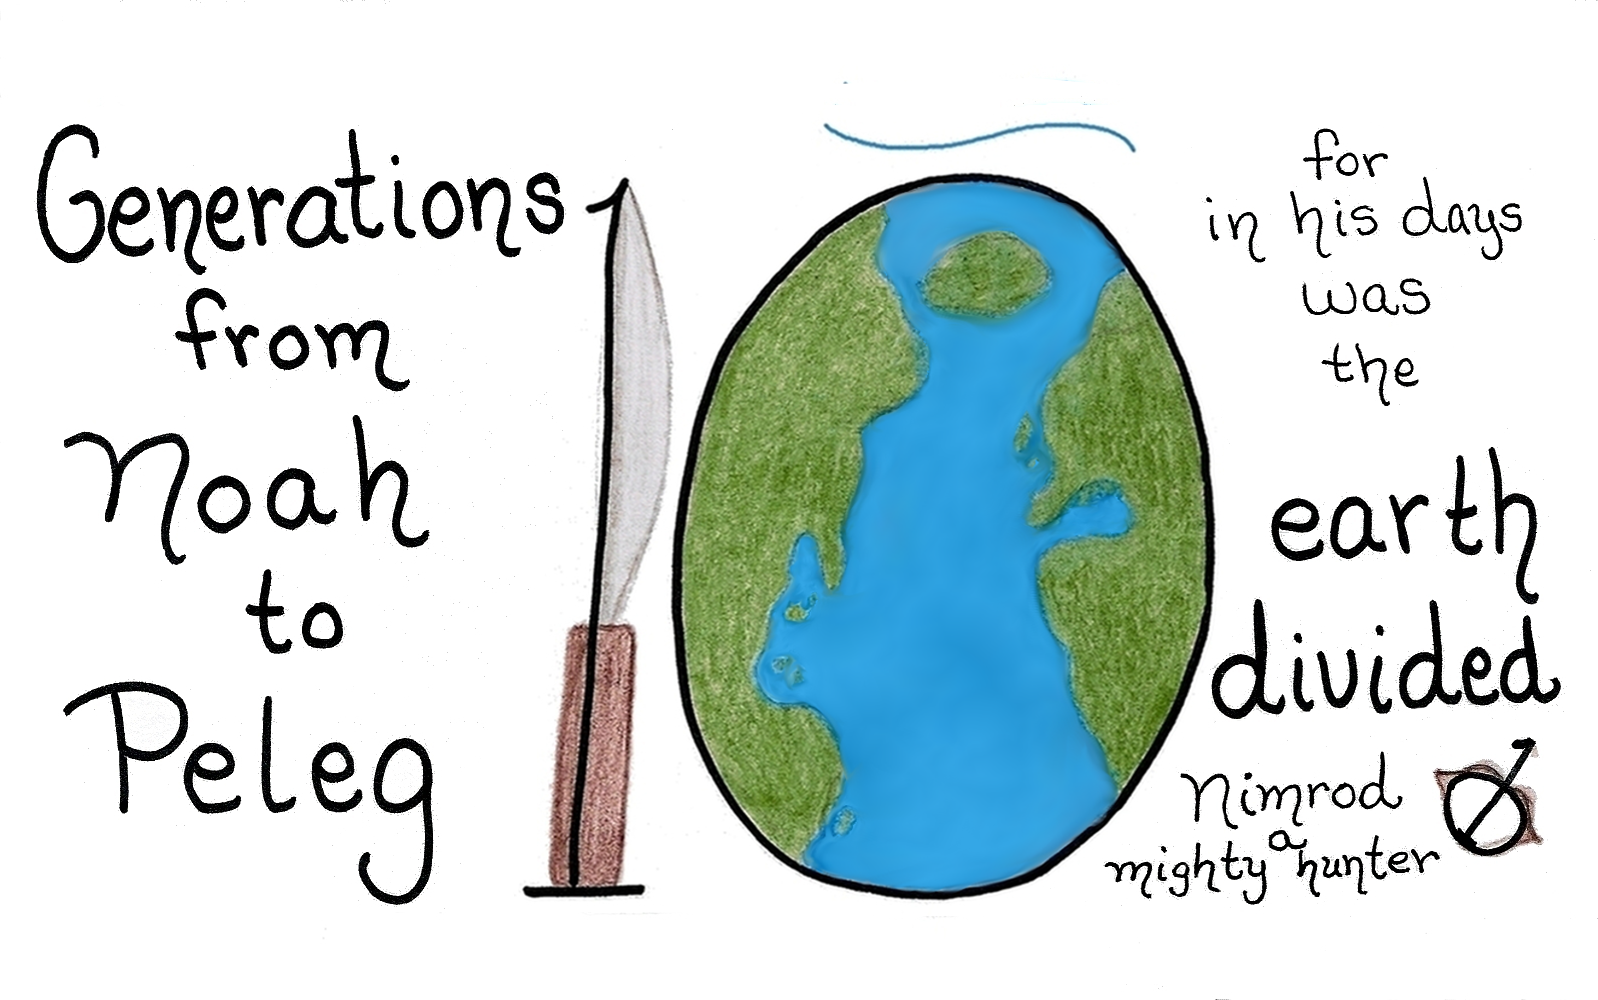 Generations
from
Noah
to
Peleg
10
for
in his days
was
the
earth
divided
Nimrod
a
mighty hunter